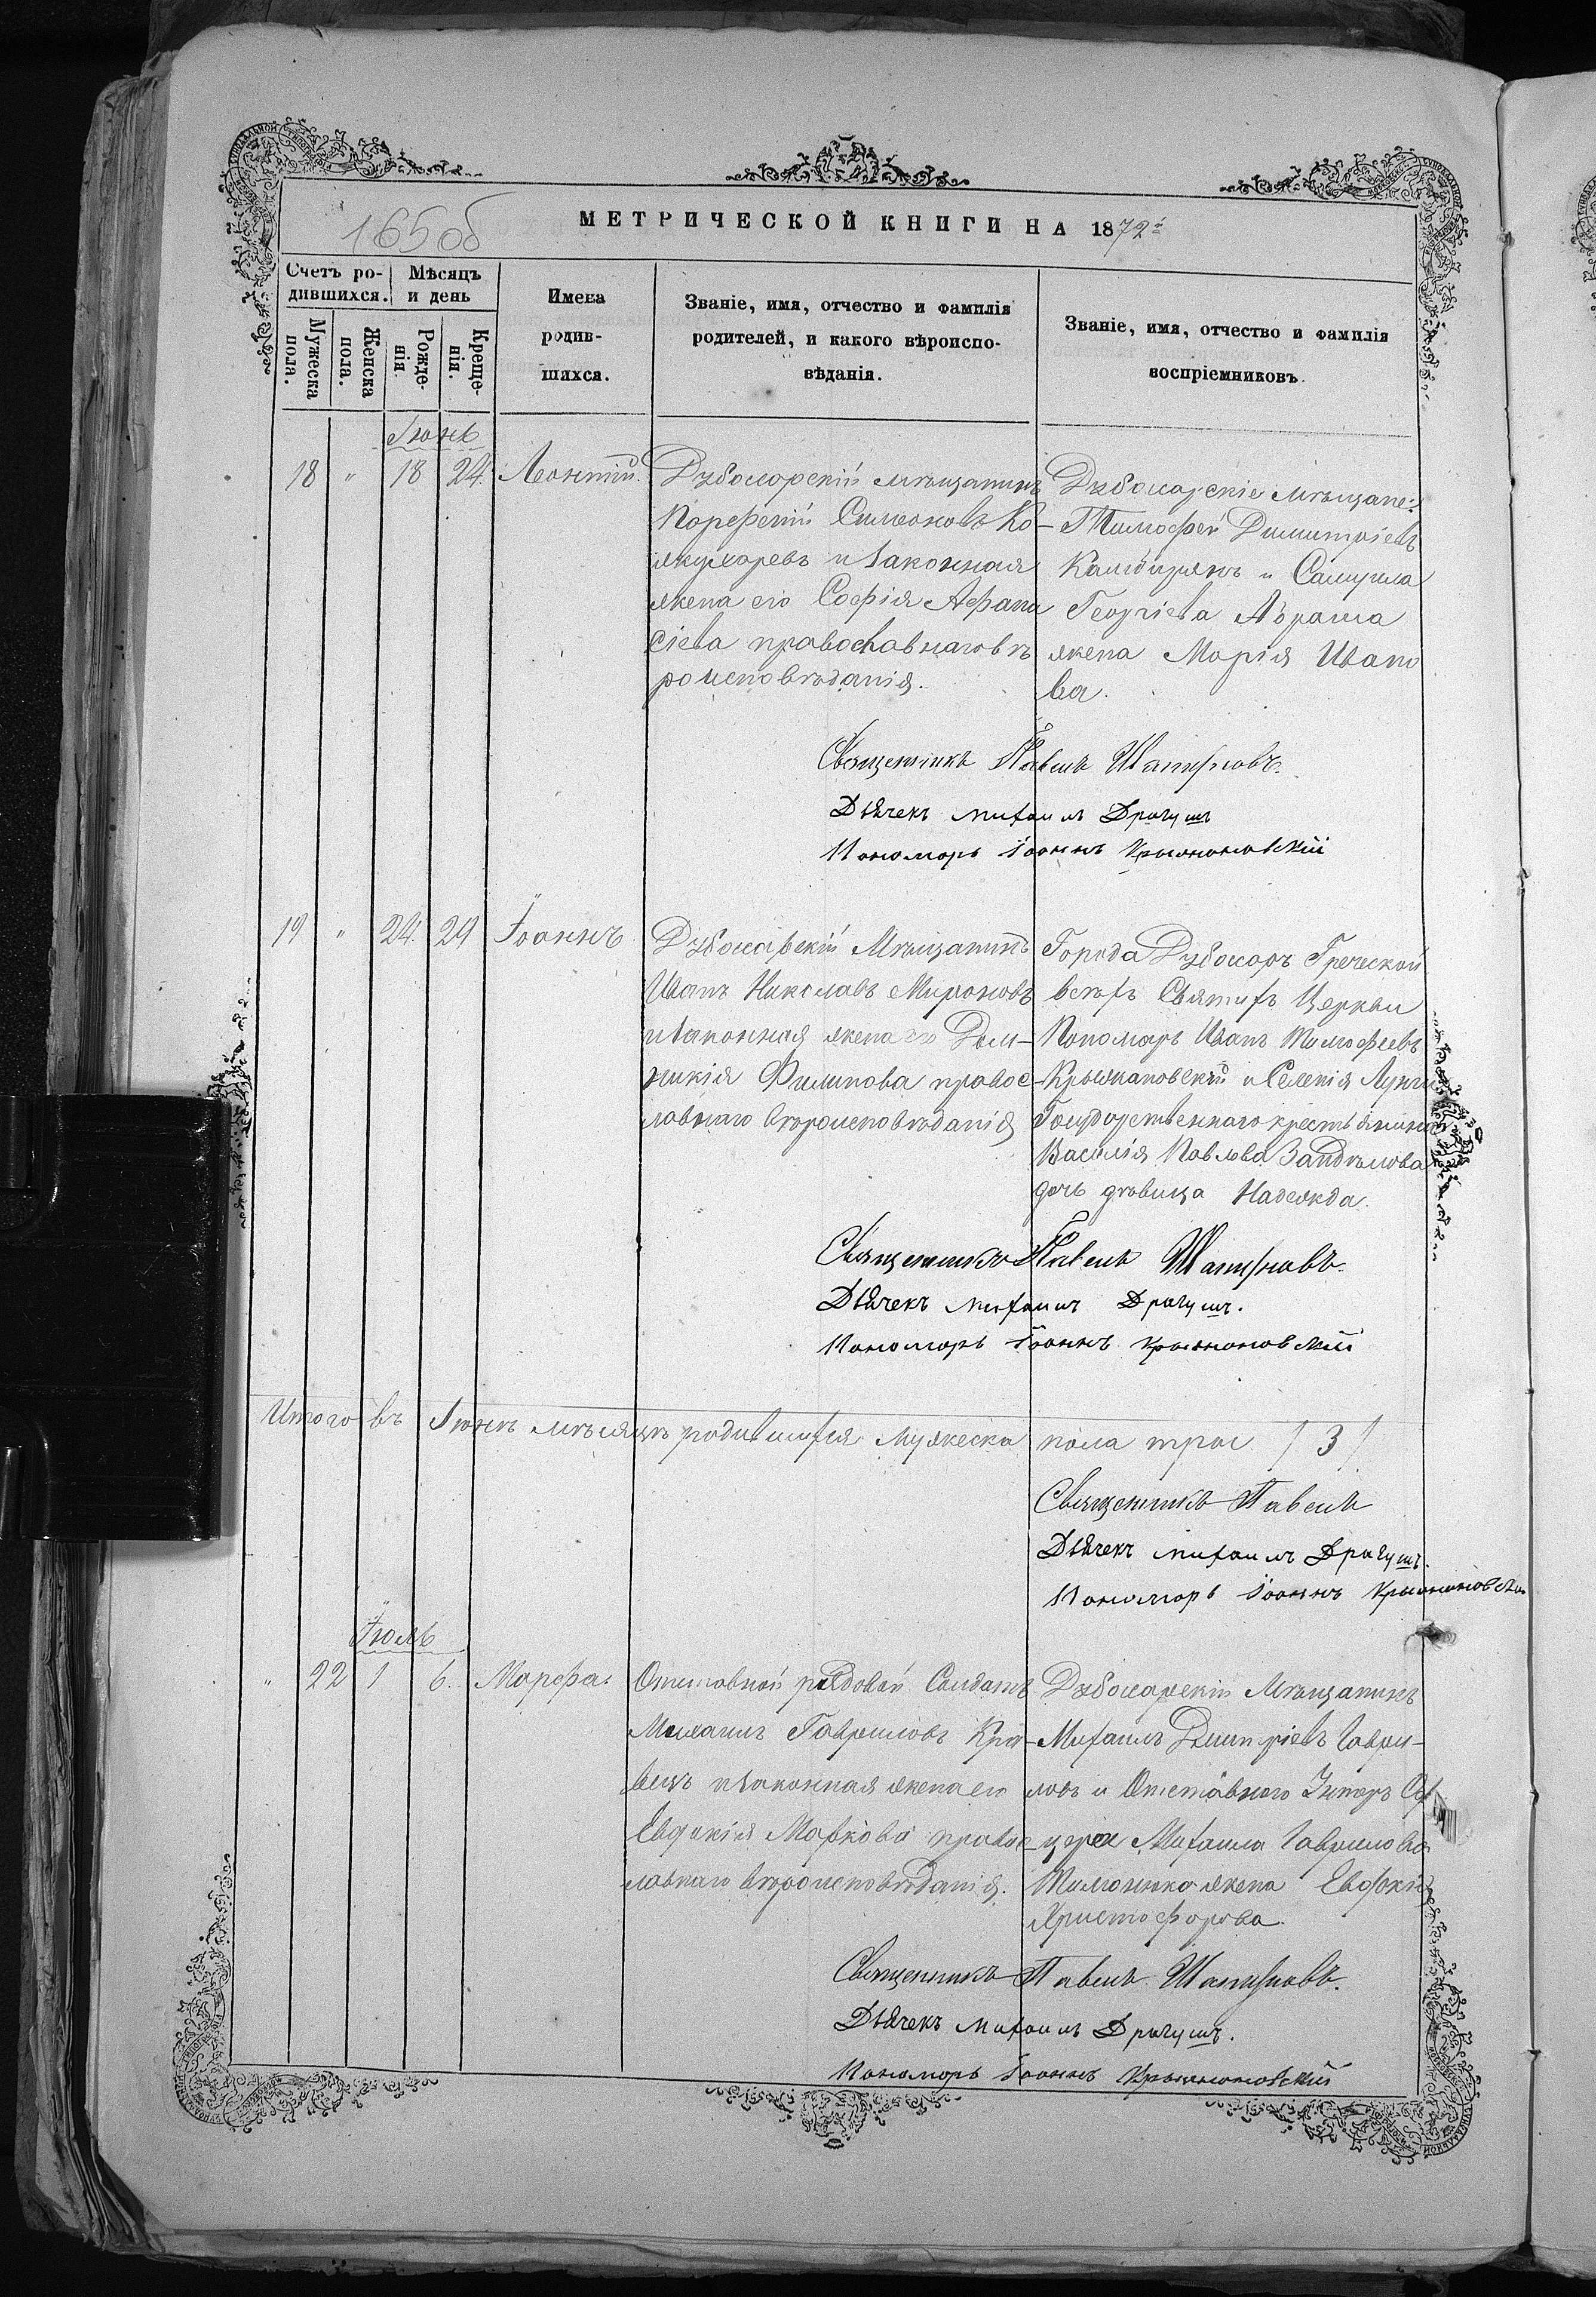 165об
МЕТРИЧЕСКОЙ КНИГИ НА 1872й
Счетъ ро-
дившихся.
Мѣсяцъ
и день
Мужеска
пола.
Женска
пола.
Рожде-
нія.
Креще-
нія.
Имена
родив-
шихся.
Званіе, имя, отчество и фамилія
родителей, и какого вѣроиспо-
вѣданія.
Званіе, имя, отчество и фамилія
воспріемниковъ.
Іюнь
18 " 18 24. Леонтій.
Дубосарскій мѣщанинъ
Порфетій Симеоновъ Ко-
жухаревъ и законная
жена его Софія Афана
сіева православнаго вѣ
роисповѣданія.
Дубосарскіе мѣщане:
Тимофей Димитріевъ
и Самуила
Георгіева Абрама
жена Марія Ивано
ва.
Священникъ Павелъ
Дьячекъ Михаилъ Драгушъ
Пономарь Іоаннъ Крыжановскій
19 " 24. 29 Іоаннъ
Дубосарскій Мѣщанинъ
Иванъ Николаевъ Мироновъ
и законная жена его Дом-
никія Филипова правос-
лавнаго вѣроисповѣданія
Города Дубосаръ Греческой
всѣхъ Святыхъ Церкви
Пономарь Иванъ Тимофеевъ
Крыжановскій и Селенія Лунги
Государственнаго крестьянина
Василія Павлова
дочь дѣвица Надежда.
Священникъ Павелъ
Дьячекъ Михаилъ Драгушъ.
Пономарь Іоаннъ Крыжановскій
Итого въ Іюнѣ мѣсяцѣ родившихся Мужеска пола трое /3/
Священникъ Павелъ
Дьячекъ Михаилъ Драгушъ.
Пономарь Іоаннъ Крыжановскій
Іюль
" 22 1 6. Марфа.
Отставной рядовой Солдатъ
Михаилъ Гавриловъ Кра-
вецъ и законная жена его
Евдокія Маркова правос-
лавнаго вѣроисповѣданія.
Дубосарскій Мѣщанинъ
Михаилъ Димитріевъ Гаври-
ловъ и Отставного Унтеръ Оф
цера Михаила Гаврилова
жена Евдокія
Христофорова.
Священникъ Павелъ
Дьячекъ Михаилъ Драгушъ.
Пономарь Іоаннъ Крыжановскій